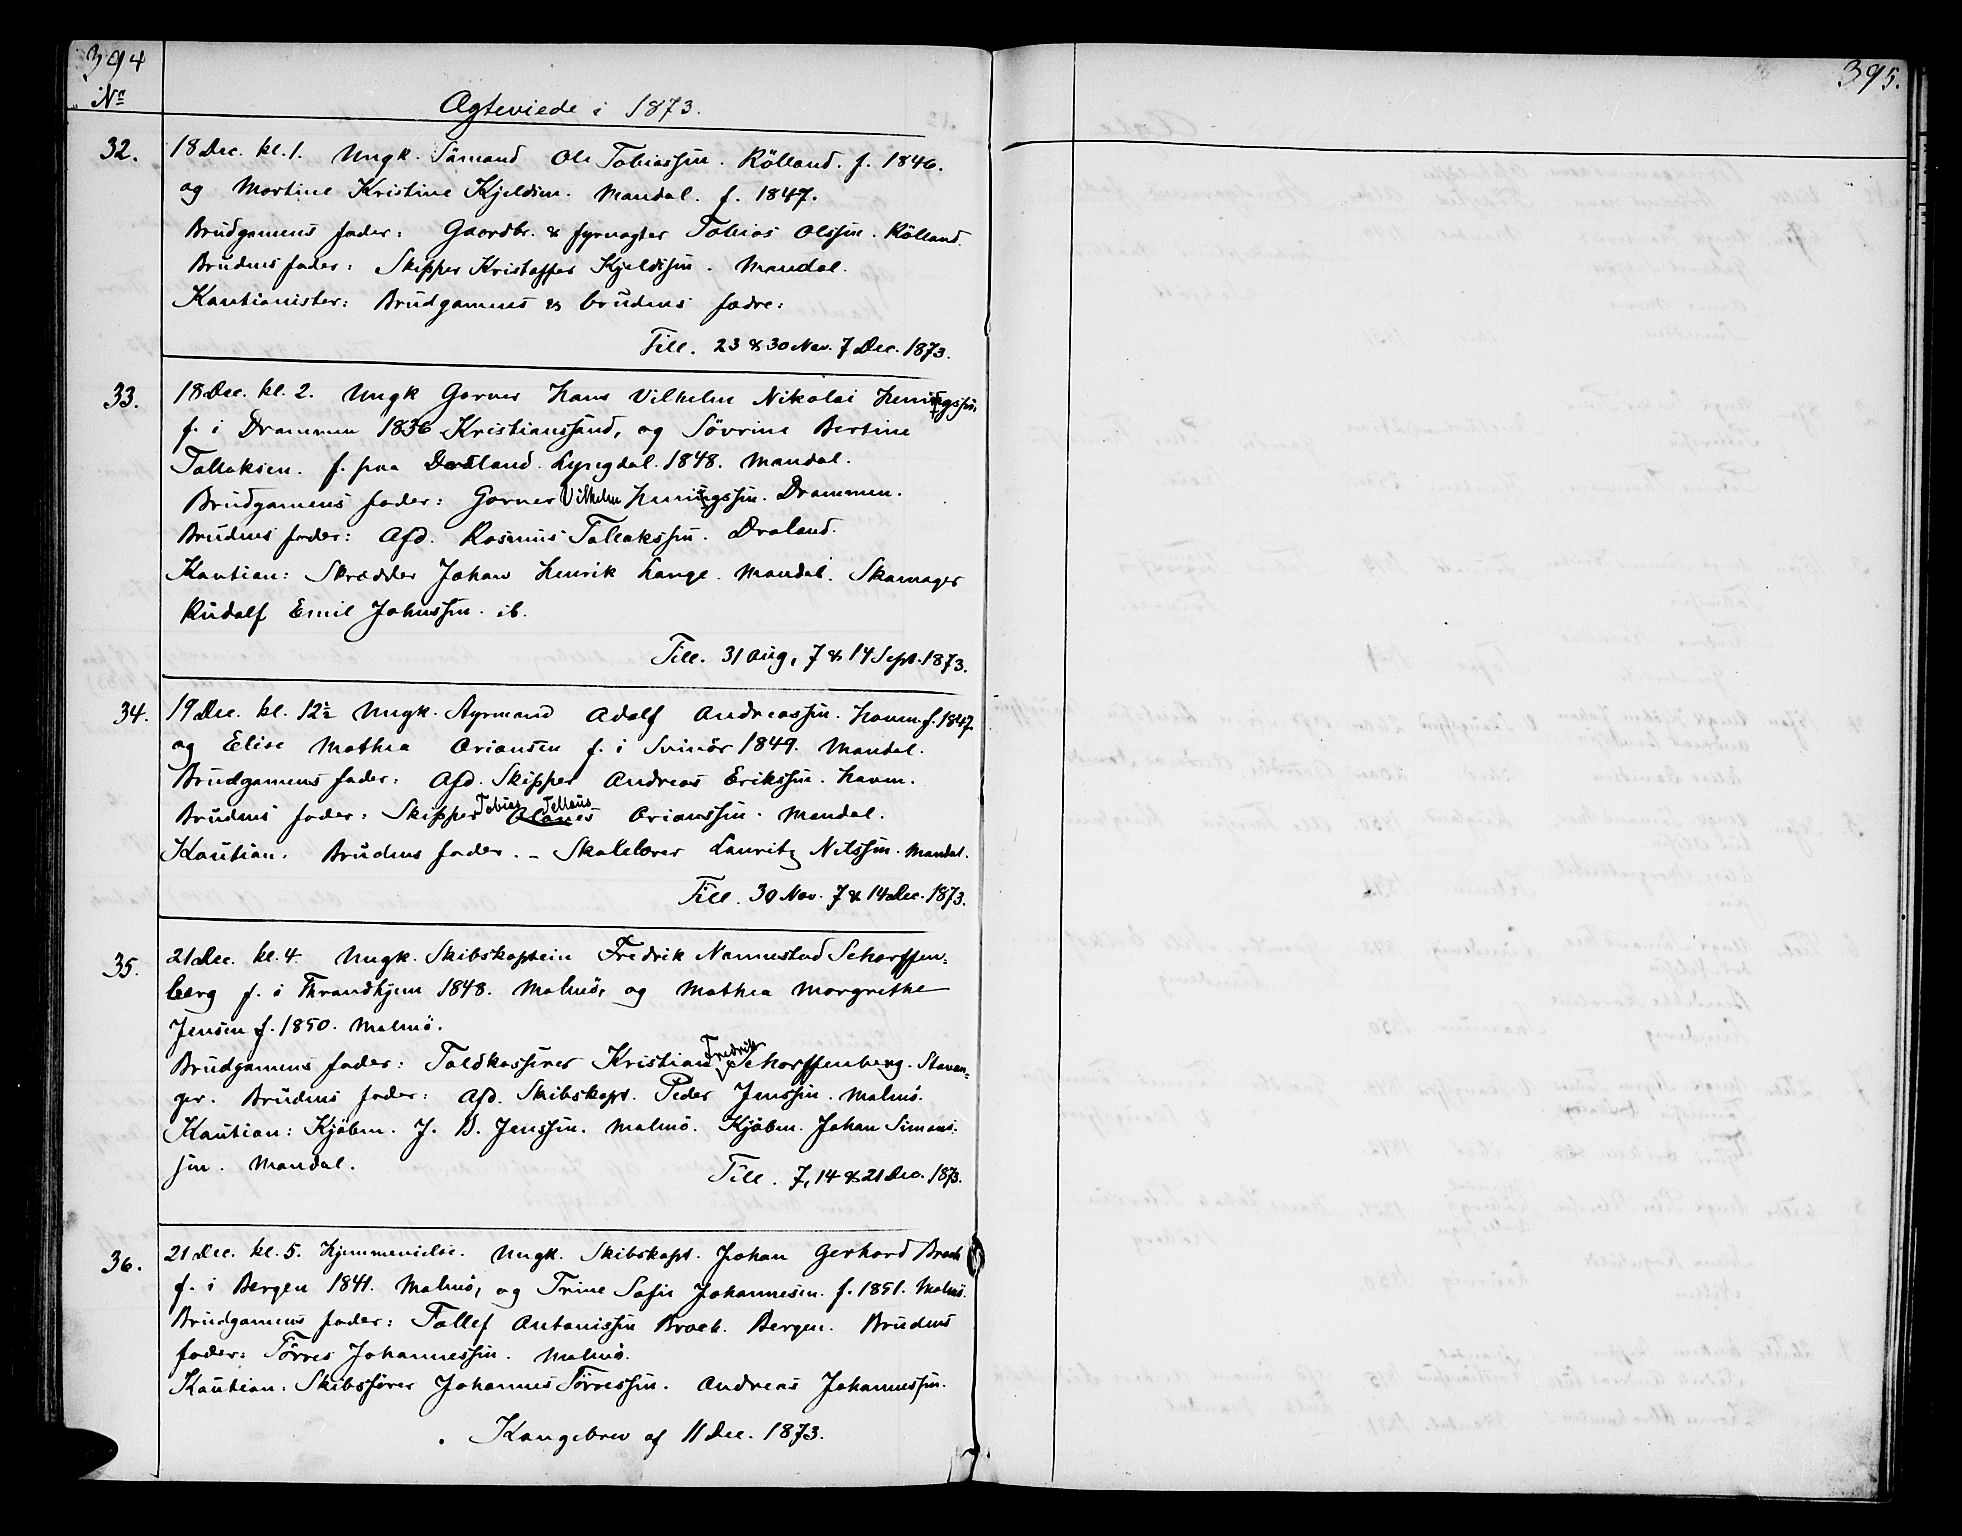 394
No
Ægteviede i 1873.
32. 18 Dec. kl. 1. Ungk. Sømand Ole Tobiassen. Rölland. f. 1846.
og Martine Kristine Kjeldsen. Mandal. f. 1847.
Brudgamens fader: Gaardbr. & fyrvagter Tobias Olssen. Rölland.
Brudens fader: Skipper Kristoffer Kjeldssen. Mandal.
Kautionister: Brudgamens & brudens fædre:
Till. 23 & 30 Nov. 7 Dec. 1873.
33. 18 Dec. kl. 2. Ungk Garver Hans Vilhelm Nikolai Henningssen,
f. i Drammen 1836 Kristianssand, og Sövrine Bertine
Tallaksen. f. paa Draland. Lyngdal. 1848. Mandal.
Brudgamens fader: Garver Vilhelm Henningssen. Drammen.
Brudens fader: Afd. Rasmus Tallakssen. Draland.
Kaution: Skrædder Johan Henrik Lange. Mandal. Skomager
Rudolf Emil Johnssen. ib.
Till. 31 Aug, 7 & 14 Sept. 1873.
34. 19 Dec. kl. 12½ Ungk. Styrmand Adolf Andreassen. Havn. f. 1847
og Elise Mathea Oriansen f. i Svinör 1849. Mandal.
Brudgamens fader: Afd. Skipper Andreas Erikssen. Havn.
Brudens fader: Skipper Tobias Tellaus Orianssen. Mandal.
Kaution. Brudens fader. – Skolelærer Lauritz Nilssen. Mandal.
Till. 30 Nov. 7 & 14 Dec. 1873.
35. 21 Dec. kl. 4. Ungk. Skibskaptein Fredrik Nannestad Scharffen=
berg f. i Thrandhjem 1848. Malmö, og Mathea Margrethe
Jensen f. 1850. Malmö.
Brudgamens fader: Toldkasserer Kristian Fredrik Scharffenberg. Stavan=
ger. Brudens fader: Afd. Skibskapt. Peder Jenssen. Malmö.
Kaution: Kjöbm. J. B. Jenssen. Malmö. Kjöbm. Johan Simons:
sen. Mandal.
Till. 7, 14 & 21 Dec. 1873.
36. 21 Dec. kl. 5. Hjemmevielse. Ungk. Skibskapt. Johan Gerhard Broch
f. i Bergen 1841. Malmö, og Trine Sofie Johannesen. f. 1851. Malmö.
Brudgamens fader: Tollef Antonissen Broch. Bergen. Brudens
fader: Törres Johannessen. Malmö.
Kaution: Skibsfører Johannes Törressen. Andreas Johannessen.
Kongebrev af 11 Dec. 1873.
395.